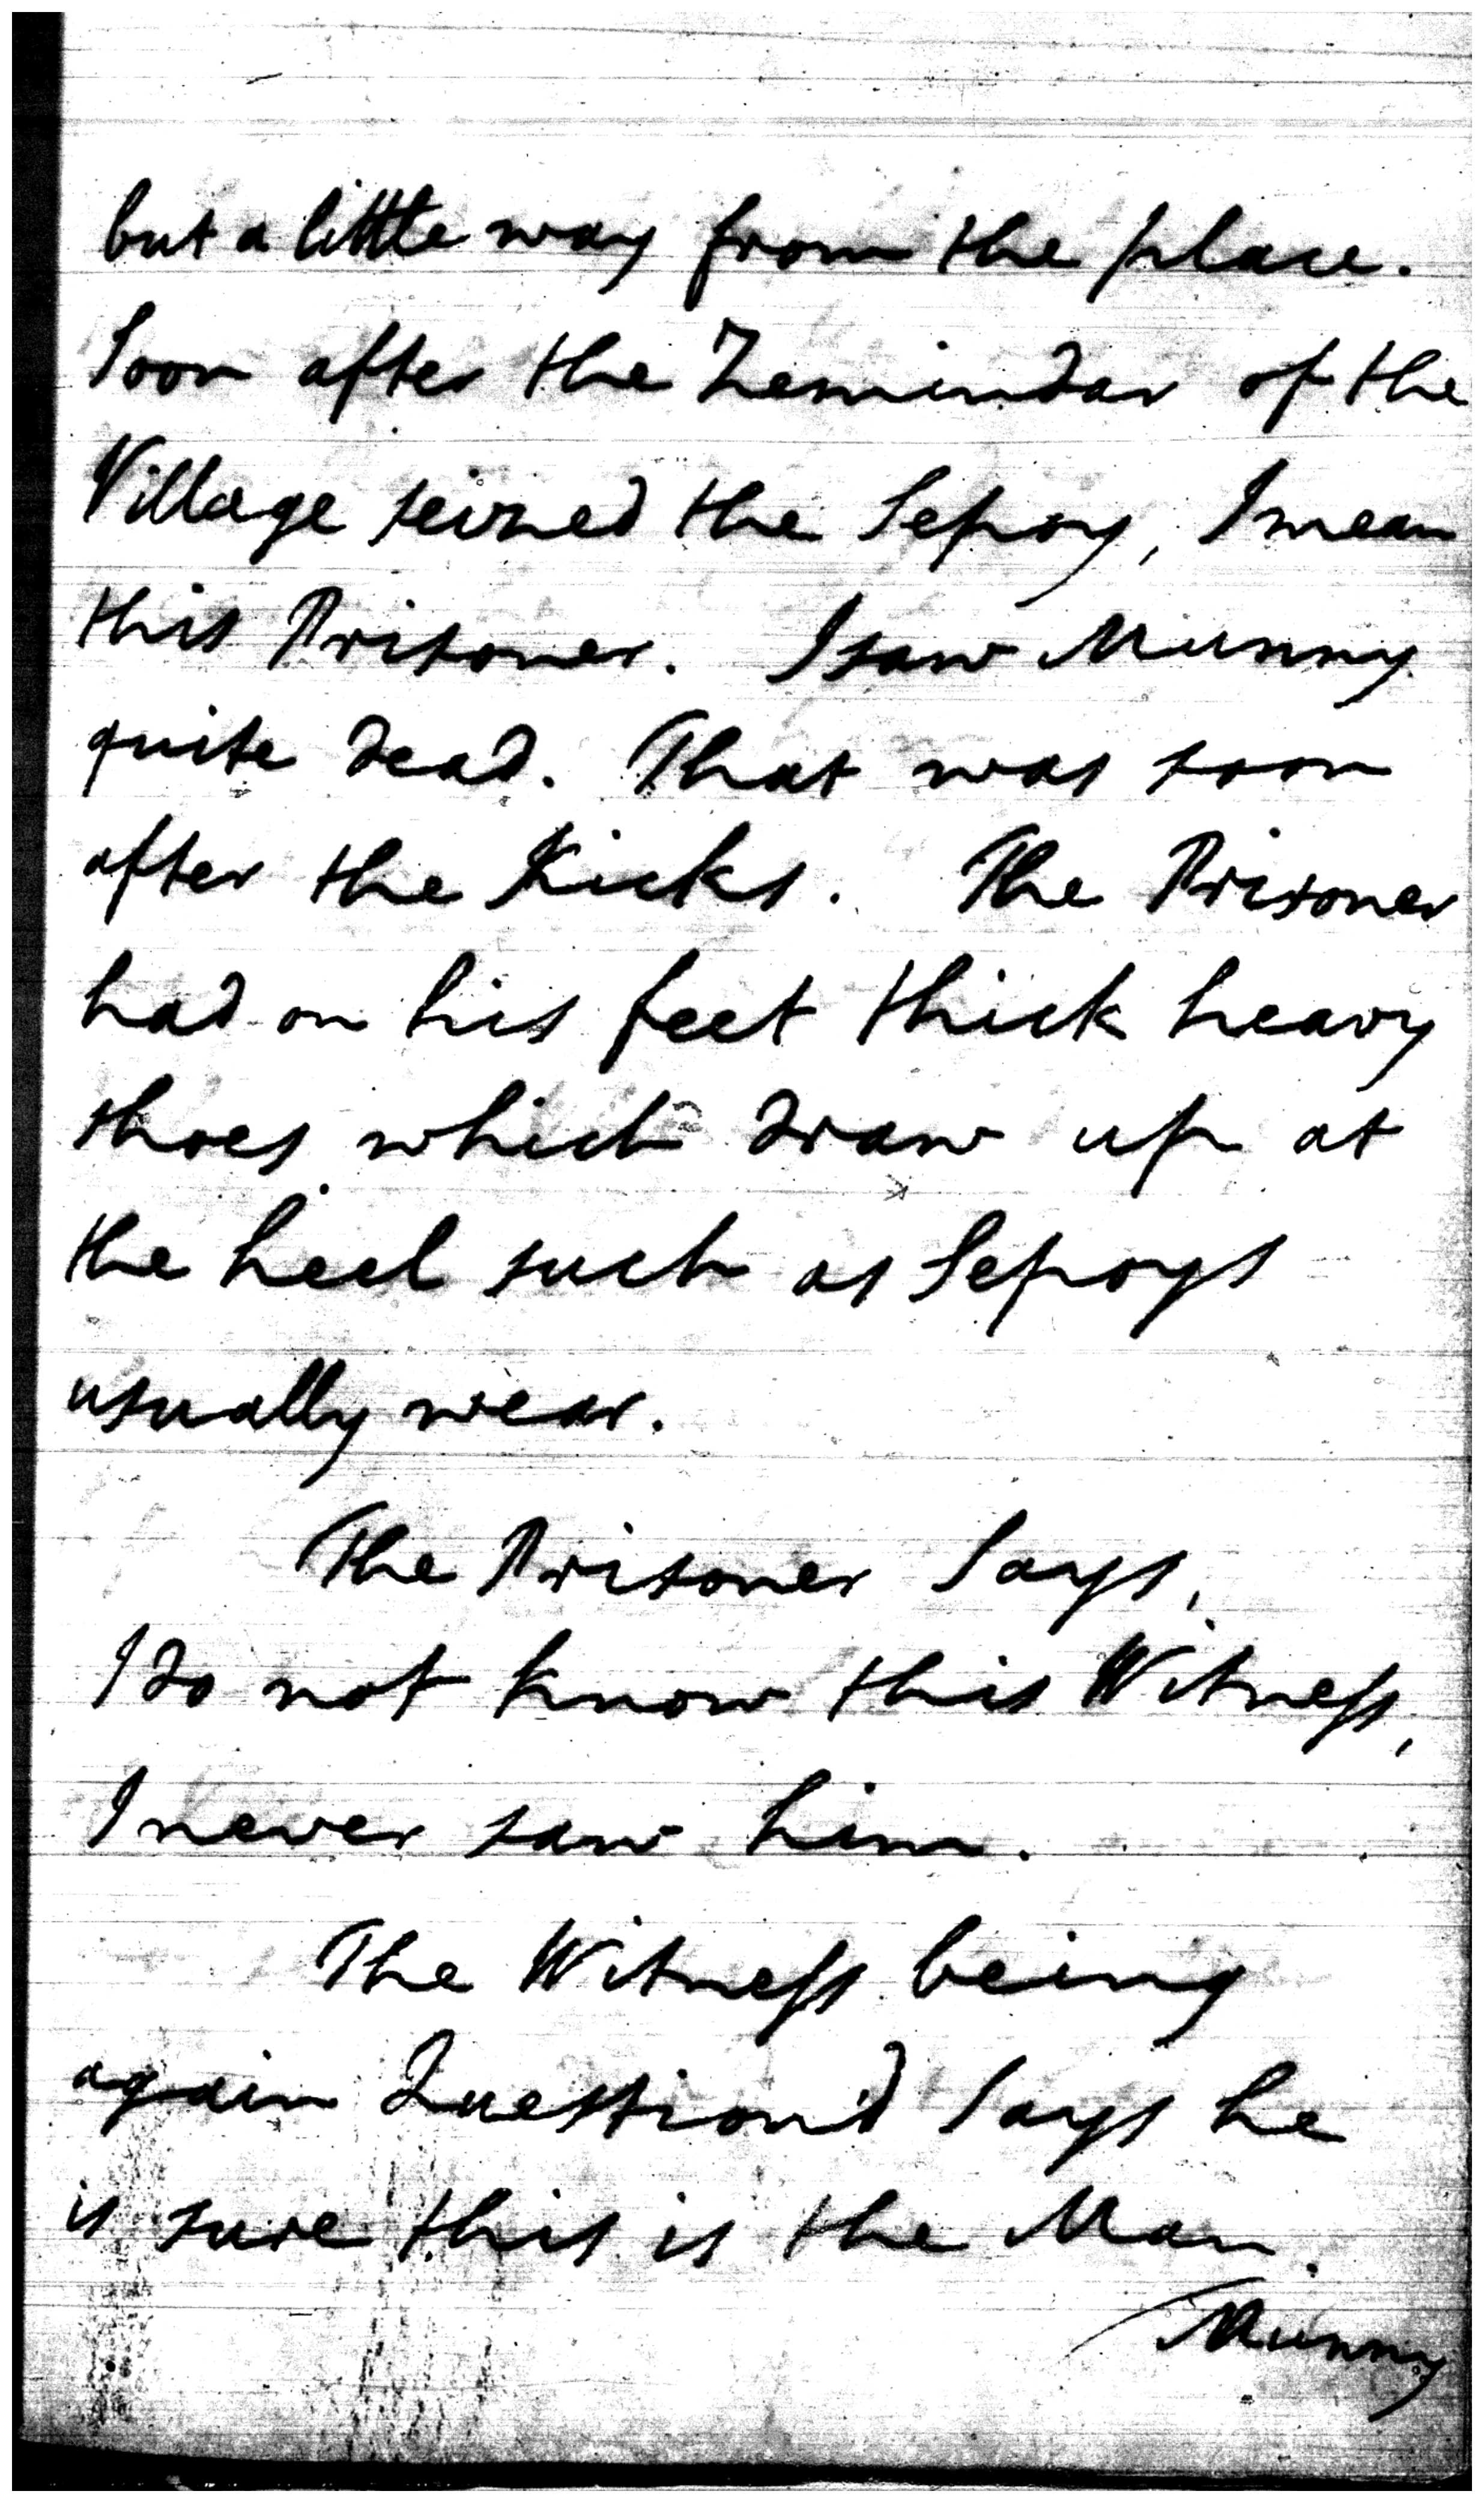 but a little way from the place.
Soon after the Zemindar of the
Village seized the Sepoy, I mean
this Prisoner. I saw Munny
quite dead. That was soon
after the Kicks. The Prisoner
had on his feet thick heavy
shoes which draw up at
the heel such as Sepoys
usually wear.
The Prisoner Says,
I do not know this Witness,
I never saw him.
The Witness being
again Question'd Says he
is sure this is the Man.
Munny